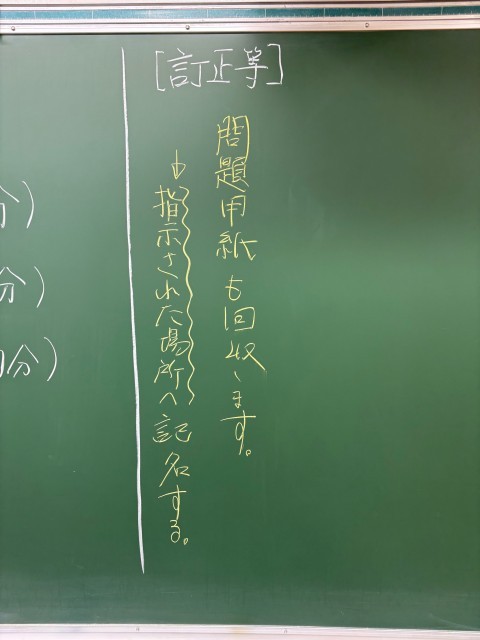 [訂正等]
問題用紙も回収します。
↓指示された場所へ記名する。
分)
分)
分)